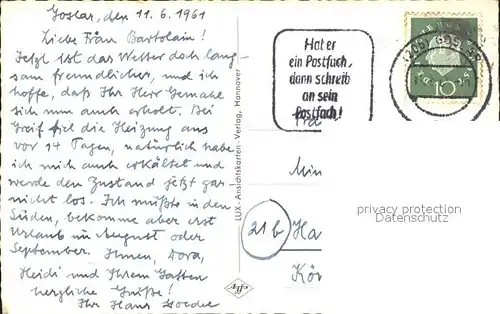 Goslar, den 11.6.1961
Liebe Frau Bartolain!
Jetzt ist das Wetter doch lang-
sam freundlicher, und ich
hoffe, daß Ihr Herr Gemahl
sich nun auch erholt. Bei
Greif fiel die Heizung aus
vor 14 Tagen, natürlich habe
ich mich auch erkältet und
werde den Zustand jetzt gar
nicht los. Ich müßte in den
Süden, bekomme aber erst
Urlaub im August oder
September. Ihnen, Dora,
Heidi und Ihrem Gatten
herzliche Grüße!
Ihr Hans
LUX-Ansichtskarten-Verlag, Hannover
Agfa
Hat er
ein Postfach,
dann schreib
an sein
Postfach!
10
Min
21b
Ha
Kör
privacy protection